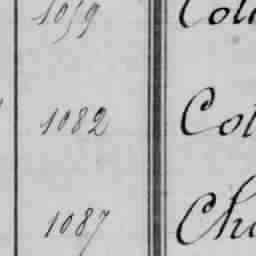 1059 Col
1082 Cot
1087 Cha